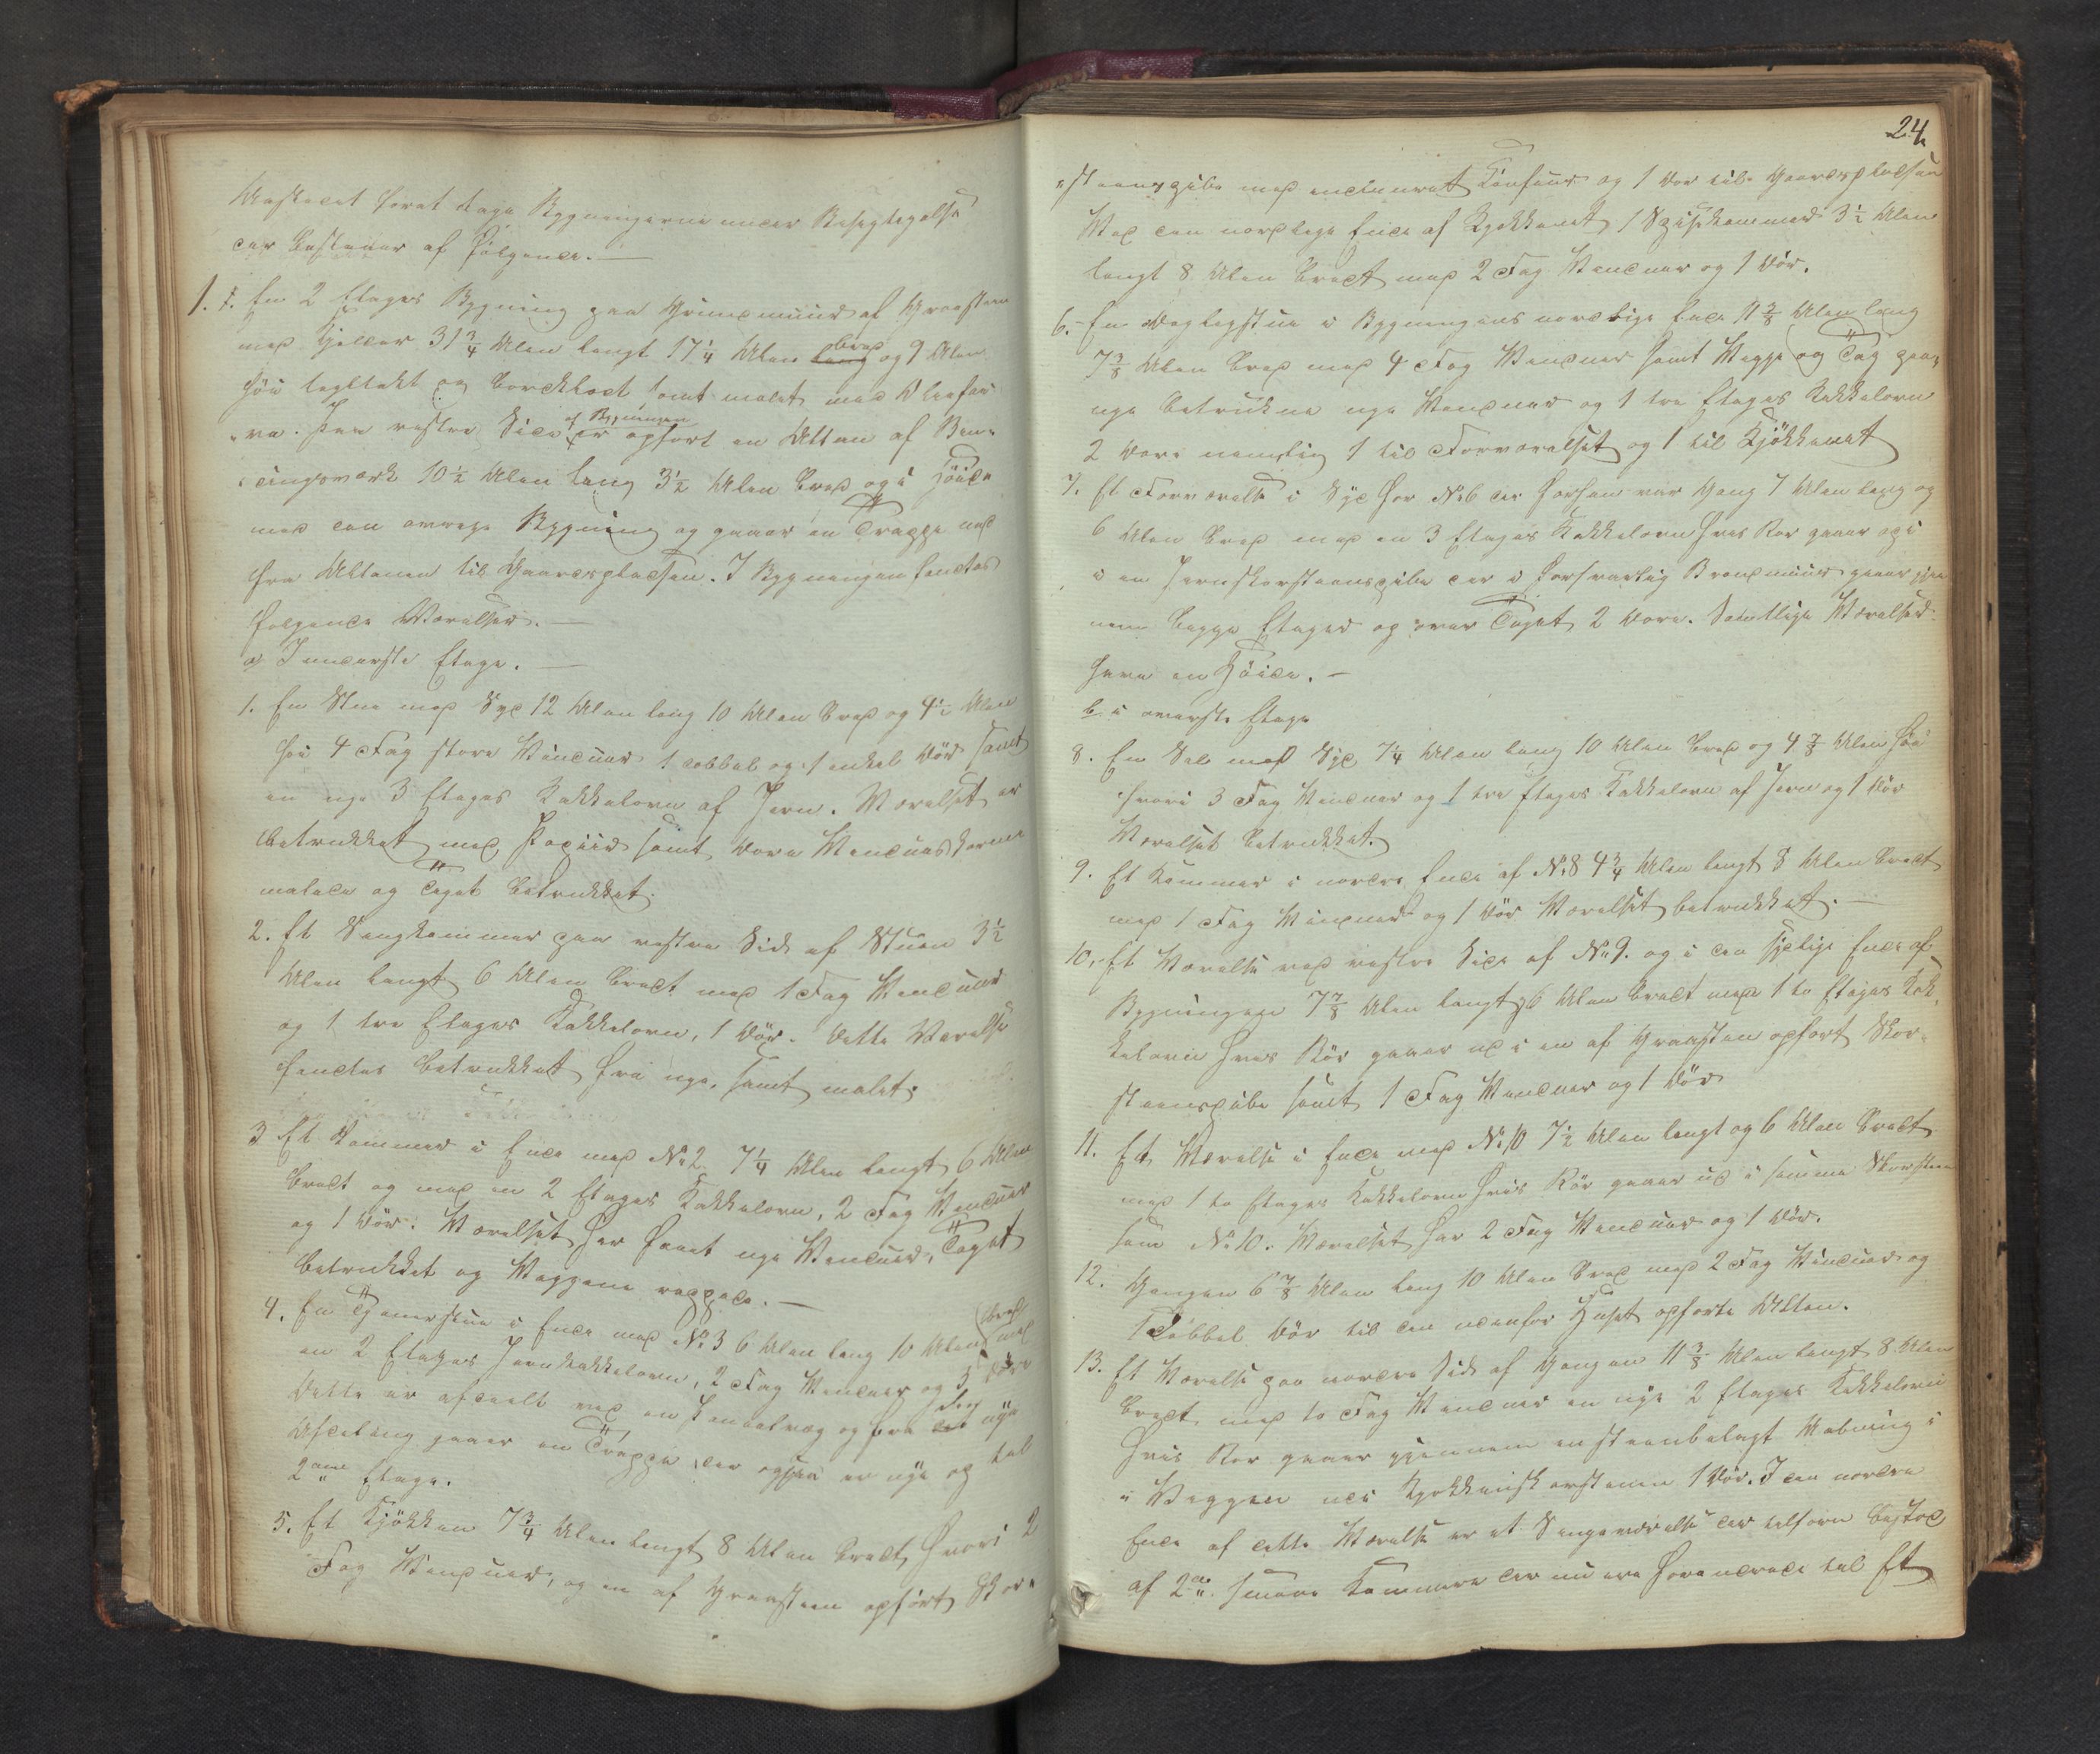 Udsteedet forat tage Bygningerne under Besigtigelse
der bestaaer af følgende. —
1. 1. En 2 Etages Bygning paa Grundmuur af Graasteen
med Kjelder 31 3/4 Alen langt 17 1/4 Alen lang bred og 9 Alen
høi tegltækt og bordklædt samt malet med Oliefar-
„ve. Paa vestre Side af Bygningen er opført en Altan af Bin„
„dingsværk 10 1/2 Alen lang 3 1/2 Alen bred og i Höide
med den øvrige Bygning og gaaer en Trappe ned
fra Altanen til Gaardspladsen. I Bygningen findes
følgende Værelser. —
a I underste Etage. —
1. En Stue mod Syd 12 Alen lang 10 Alen bred og 4 1/2 Alen
høi 4 Fag store Vinduer 1 dobbel og 1 enkel Dör samt
en nye 3 Etages Kakkelovn af Jern. Værelset er
betrukket med Papiir samt Döre Vinduskarme
malede og Taget betrukket.
2. Et Sengkammer paa vestre Side af Stuen 3 1/2
Alen langt 6 Alen bredt med 1 Fag Vinduer
og 1 tre Etages Kakkelovn, 1 Dör. Dette Værelse
findes betrukket fra nye, samt malet.
3 Et Kammer i Ende med No 2 7 1/4 Alen langt 6 Alen
bredt og med en 2 Etages Kakkelovn, 2 Fag Vinduer
og 1 Dör. Værelset har faaet nye Vinduer, Taget
betrukket og Væggene rappede. —
4. En Tjenerstue i Ende med No 3 6 Alen lang 10 Alen bred med
en 2 Etages Jernkakkelovn, 2 Fag Vinduer og 3 Döre
Dette er afdeelt ved en Panelvæg og fra den nye
Afdeling gaaer en Trappe der ogsaa er nye og til
2den Etage.
5. Et Kjökken 7 3/4 Alen langt 8 Alen bredt, hvori 2
Fag Vinduer, og en af Graasteen opfört Skor„
24.
„steenspibe med indmuret Komfuur og 1 Dör til Gaardspladsen
Ved den nordlige Ende af Kjøkkenet 1 Spisekammer 3 1/2 Alen
langt 8 Alen bredt med 2 Fag Vinduer og 1 Dör.
6. En Dagligstue i Bygningens nordlige Ende 11 3/8 Alen lang
7 3/8 Alen bred med 4 Fag Vinduer samt Vægge og Tag paa„
nye betrukne nye Vinduer og 1 tre Etages Kakkelovn
2 Döre nemlig 1 til Forværelset og 1 til Kjökkenet
7. Et Forværelse i Syd for No 6 der forhen var Gang 7 Alen lang og
6 Alen bred med en 3 Etages Kakkelovn hvis Rør gaaer op i
i en Jernskorsteenspibe der i forsvarlig Brandmuur gaaer gjen
nem begge Etager og over Taget 2 Döre. Samtlige Værelser
have en Höide. —
b. i øverste Etage
8. En Sal mod Syd 7 1/4 Alen lang 10 Alen bred og 4 7/8 Alen høi
hvori 3 Fag Vinduer og 1 tre Etages Kakkelovn af Jern og 1 Dör
Værelset betrukket.
9. Et Kammer i nordre Ende af No 8 4 3/4 Alen langt 8 Alen bredt
med 1 Fag Vinduer og 1 Dör Værelset betrukket. —
10. Et Værelse ved vestre Side af No 9. og i den sydlige Ende af
Bygningen 7 7/8 Alen langt og 6 Alen bredt med 1 to Etages Kak„
kelovn hvis Rör gaaer ud i en af Graasten opført Skor„
steenspibe samt 1 Fag Vinduer og 1 Dör
11. Et Værelse i Ende med No 10 7 1/2 Alen langt og 6 Alen bredt
med 1 to Etages Kakkelovn hvis Rör gaaer ud i samme Skorsteen
som No 10. Værelset har 2 Fag Vinduer og 1 Dör.
12. Gangen 6 7/8 Alen lang 10 Alen bred med 2 Fag Vinduer og
1 Dobbel Dör til den udenfor Huset opførte Altan.
13. Et Værelse paa nordre Side af Gangen 11 3/8 Alen langt 8 Alen
bredt med to Fag Vinduer en nye 2 Etages Kakkelovn
hvis Rør gaaer gjennem en steenbelagt Aabning i
i Væggen ud i Kjøkkenskorstenen 1 Dör. I den nordre
Ende af dette Værelse er et Sengeværelse der tilforn bestod
af 2de smaae Kammere der nu ere forandrede til Et